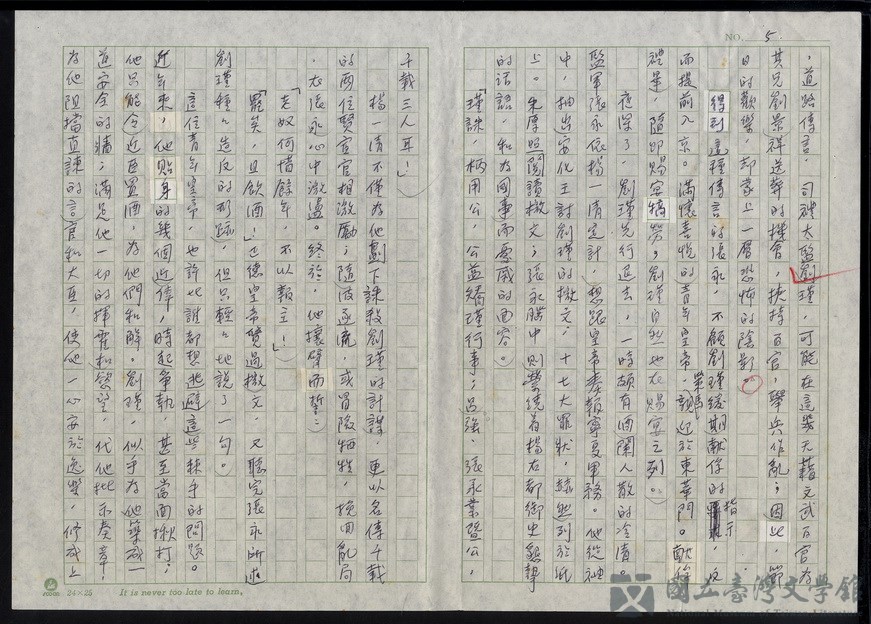 NO. 5
，道路傳言，司禮大監劉瑾，可能在這幾天藉文武百官為
其兄劉景祥送葬的機會，挾持百官，舉兵作亂；因此，節
日的歡樂，却蒙上一層恐怖的陰影。
得到這種傳言的張永，不顧劉瑾緩期獻俘的指示，反
而提前入京。滿懷喜悅的青年皇帝，親迎於東華門。獻俘
禮畢，隨即賜宴犒勞，劉瑾自然也在賜宴之列。
夜深了，劉瑾先行退去，一時頗有酒闌人散的冷清。
監軍張永依楊一清定計，想跟皇帝奏報寧夏軍務。他從袖
中，抽出安化王討劉瑾的檄文，十七大罪狀，赫然列於紙
上。朱厚照閱讀檄文；張永腦中則縈繞着楊右都御史懇摯
的話語，和為國事而憂戚的面容。
「瑾誅，柄用公，公益矯瑾行事；呂強、張承業暨公，
千載三人耳！」
楊一清不僅為他劃下誅殺劉瑾的計謀，更以名傳千載
的兩位賢宦官相激勵；隨波逐流，或冒險犧牲，挽回亂局
，在張永心中激盪。終於，他攘臂而誓：
「老奴何惜餘年，不以報主！」
「罷矣，且飲酒！」正德皇帝覽過檄文，又聽完張永所述
劉瑾種々造反的形跡，但只輕々地說了一句。
這位青年皇帝，也許比誰都想逃避這些棘手的問題。
近年來，他貼身的幾個近倖，時起爭執，甚至當面揪打，
他只能令近臣置酒，為他們和解。劉瑾，似乎為他築成一
道安全的牆；滿足他一切的揮霍和慾望，代他批示奏章，
為他阻擋直諫的言官和大臣，使他一心安於逸樂，修成上
24×25 It is never too late to learn.
國立臺灣文學館